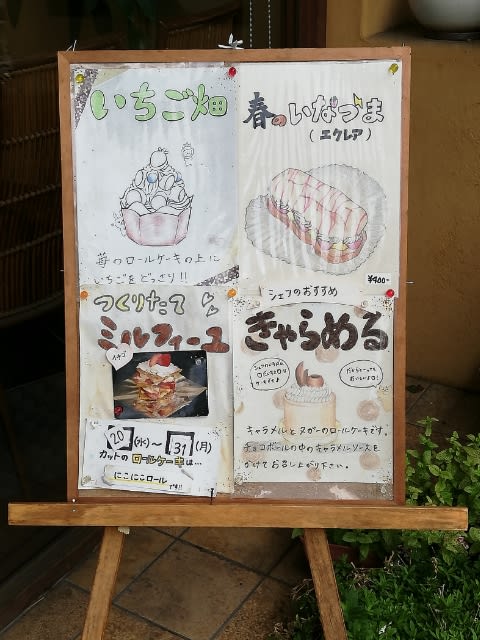 いちご畑
苺のロールケーキの上に
いちごをどっさり!!
春のいなづま
(エクレア)
¥400-
つくりたて
ミルフィーユ
イチゴ
20(水)～31(月)
カットのロールケーキは…
にこにこロール
です!!
シェフのおすすめ
きゃらめる
キャラメルとヌガーのロールケーキです。
チョコボールの中のキャラメルソースを
かけてお召し上がり下さい。